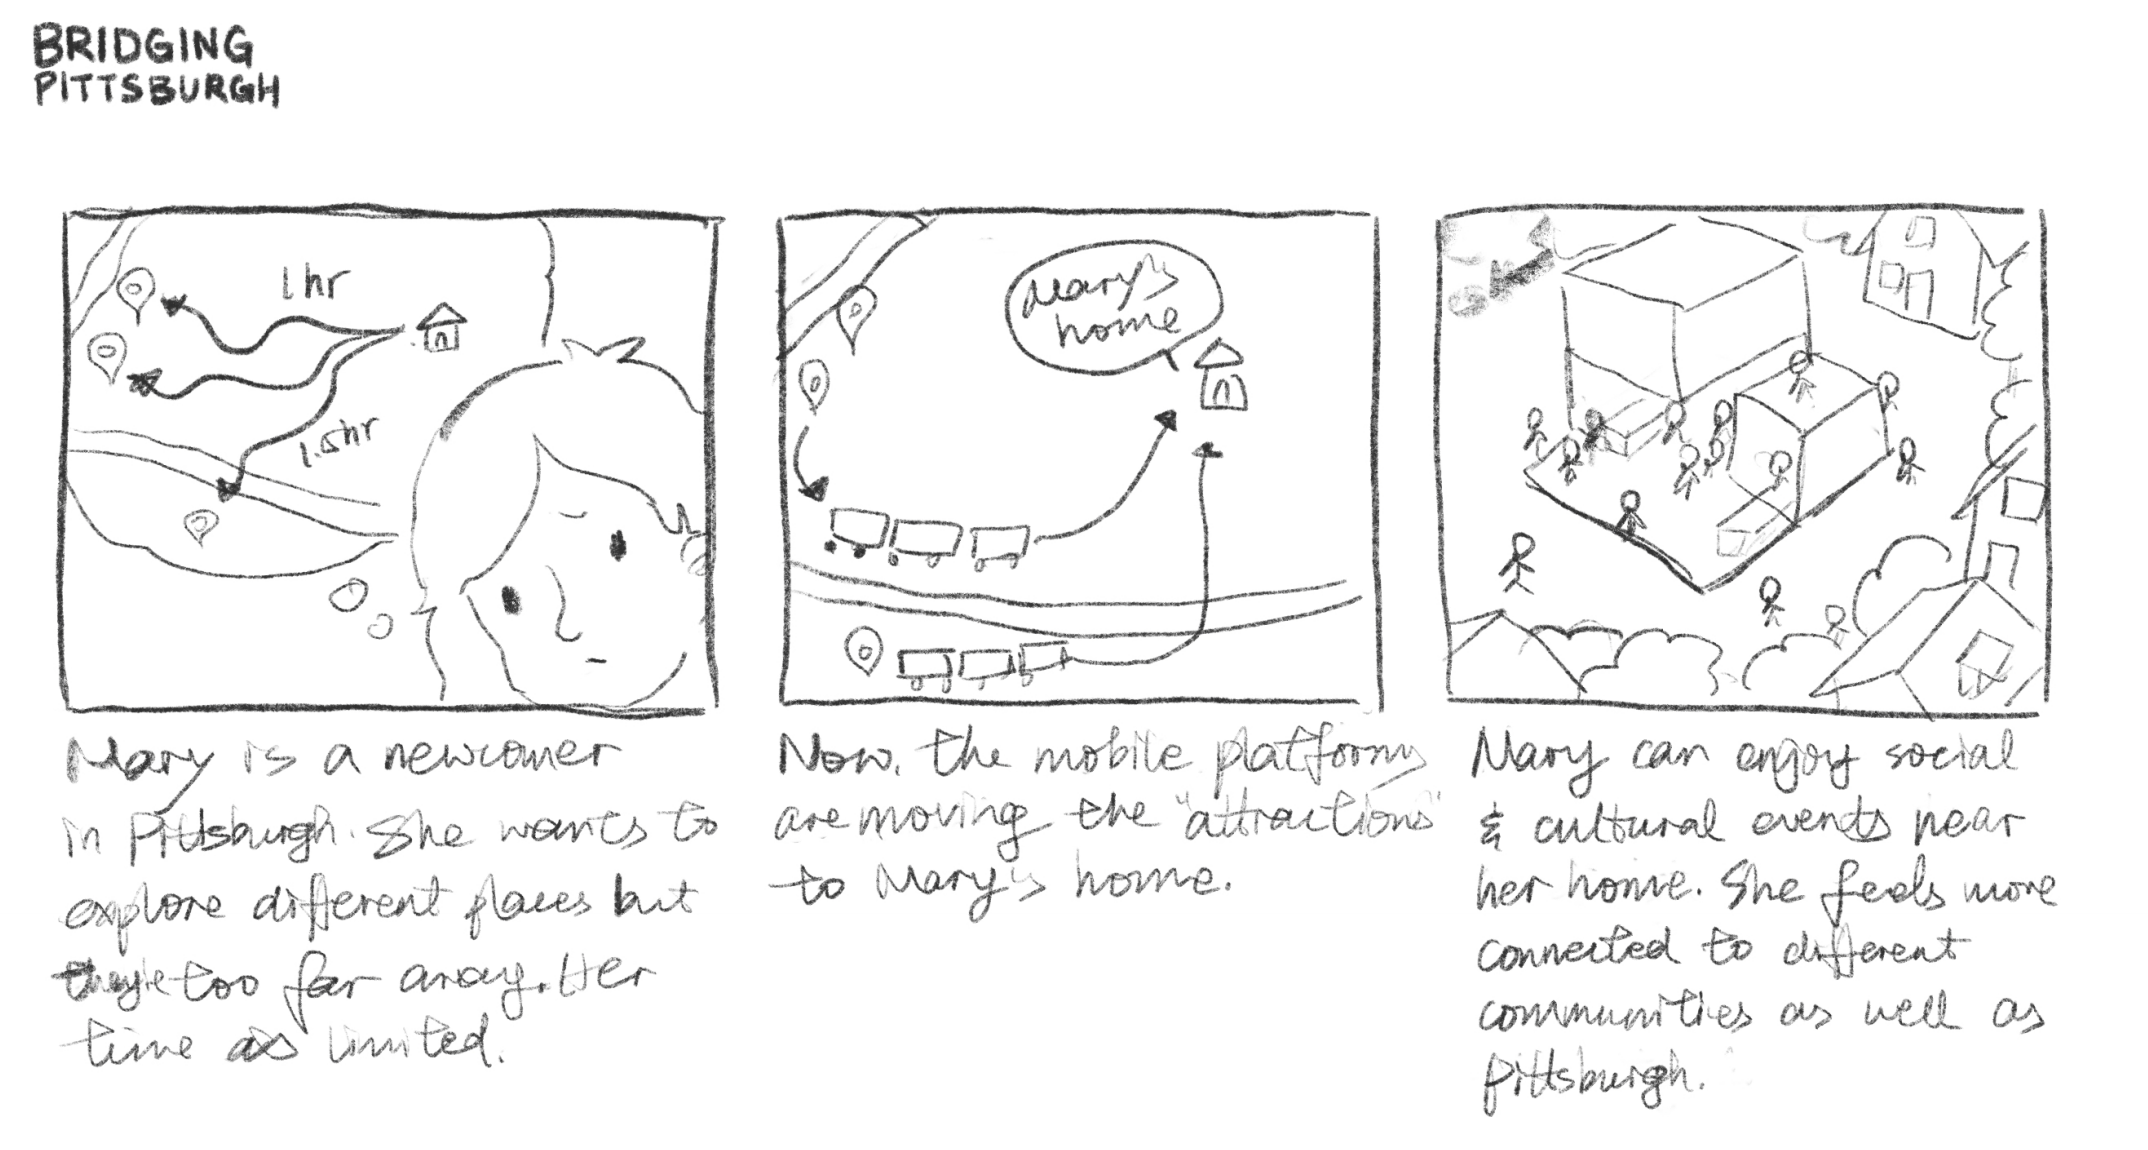 BRIDGING
PITTSBURGH
1 hr
1.5 hr
Mary is a newcomer
in Pittsburgh. She wants to
explore different places but
they're too far away. Her
time is limited.
Mary's
home
Now, the mobile platforms
are moving the "attractions"
to Mary's home.
Mary can enjoy social
& cultural events near
her home. She feels more
connected to different
communities as well as
Pittsburgh.